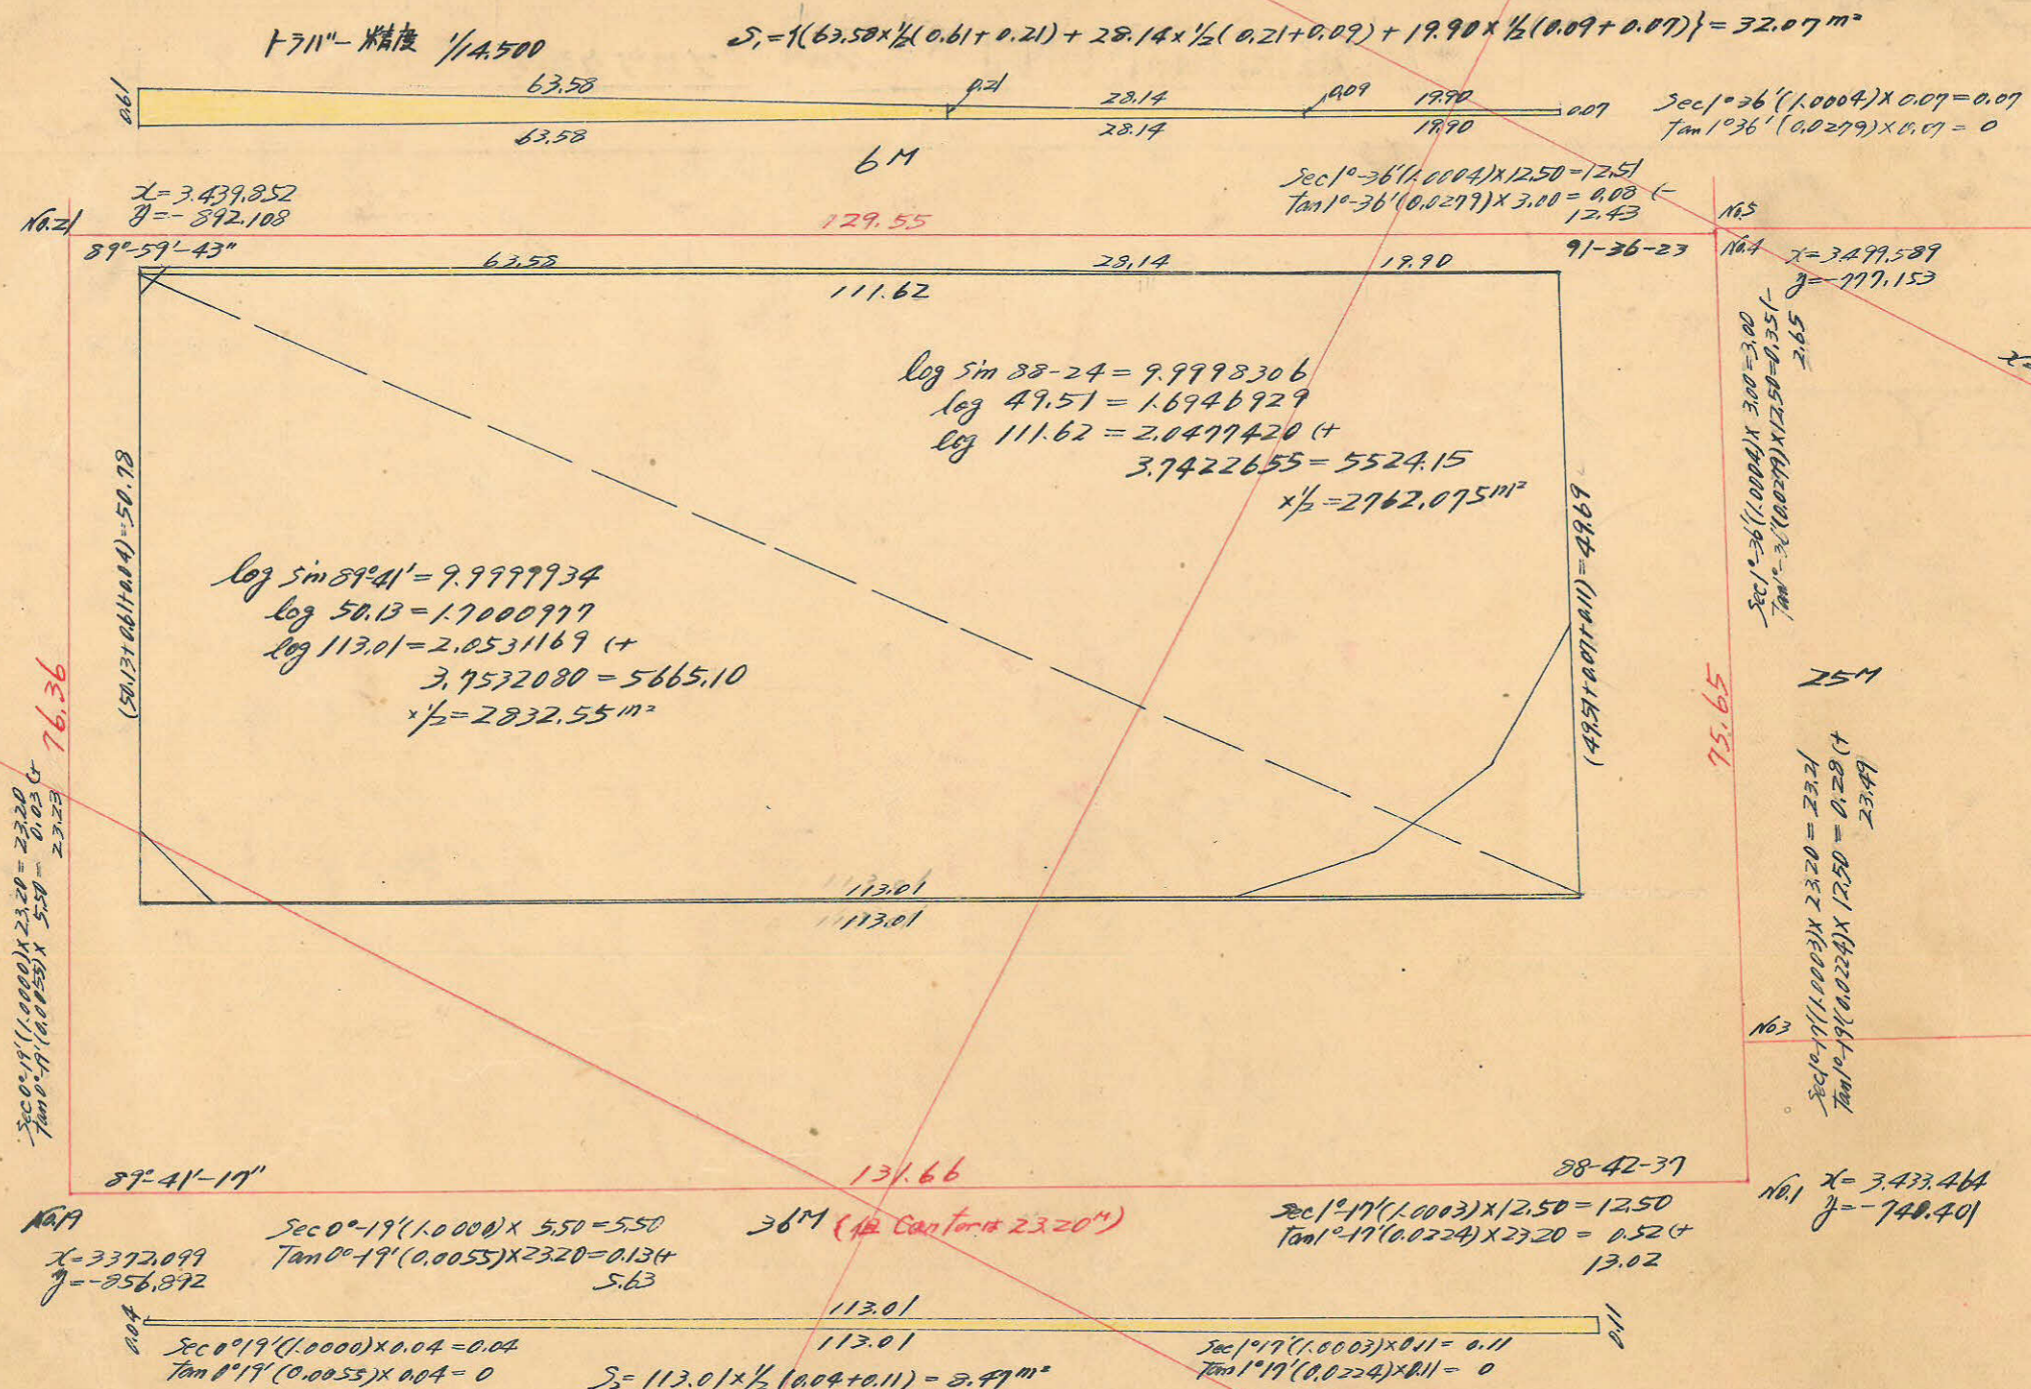 トラバー精度 1/14.500
S₁=1{(63.58×1/2(0.61+0.21)+28.14×1/2(0.21+0.09)+19.90×1/2(0.09+0.07)}=32.07m²
0.61
63.58
0.21
28.14
0.09
19.90
0.07
63.58
28.14
19.90
Sec1°36'(1.0004)×0.07=0.07
tan1°36'(0.0279)×0.07=0
6M
x=3.439.852
y=-892.108
Sec1°-36'(1.0004)×12.50=12.51
tan1°-36'(0.0279)×3.00=0.08(-
12.43
No.21
129.55
No.5
89°-59'-43"
91-36-23
No.4
x=3.499.589
y=-777.153
63.58
28.14
19.90
111.62
Sec1°-36'(1.0004)×3.00=3.00
Tan1°-36'(0.0279)×12.50=0.35(-
2.65
log sin 88-24=9.9998306
log 49.51=1.6946929
log 111.62=2.0477420(+
3.7422655=5524.15
×1/2=2762.075m²
(50.13+0.61+0.04)=50.78
(49.51+0.07+0.11)=49.69
log sin 89°41'=9.9999934
log 50.13=1.7000977
log 113.01=2.0531169(+
3.7532080=5665.10
×1/2=2832.55m²
76.36
75.65
25M
Sec0°-19'(1.0000)×23.20=23.20
Tan0°-19'(0.0055)×5.50=0.03(+
23.23
Sec1°-17'(1.0003)×23.20=23.21
Tan1°-19'(0.0224)×12.50=0.28(+
23.49
113.01
113.01
No3
89°-41'-17"
131.66
88-42-37
No.1
x=3.433.464
y=-740.401
No.19
x=3372.099
y=-856.892
Sec0°-19'(1.0000)×5.50=5.50
Tan0°-19'(0.0055)×23.20=0.13(+
5.63
36M
(但 Cantorは 23.20M)
Sec1°-17'(1.0003)×12.50=12.50
Tan1°-17'(0.0224)×23.20=0.52(+
13.02
0.04
113.01
113.01
0.11
Sec0°19'(1.0000)×0.04=0.04
Tan0°19'(0.0055)×0.04=0
S₂=113.01×1/2(0.04+0.11)=8.47m²
Sec1°17'(1.0003)×0.11=0.11
Tan1°17'(0.0224)×0.11=0